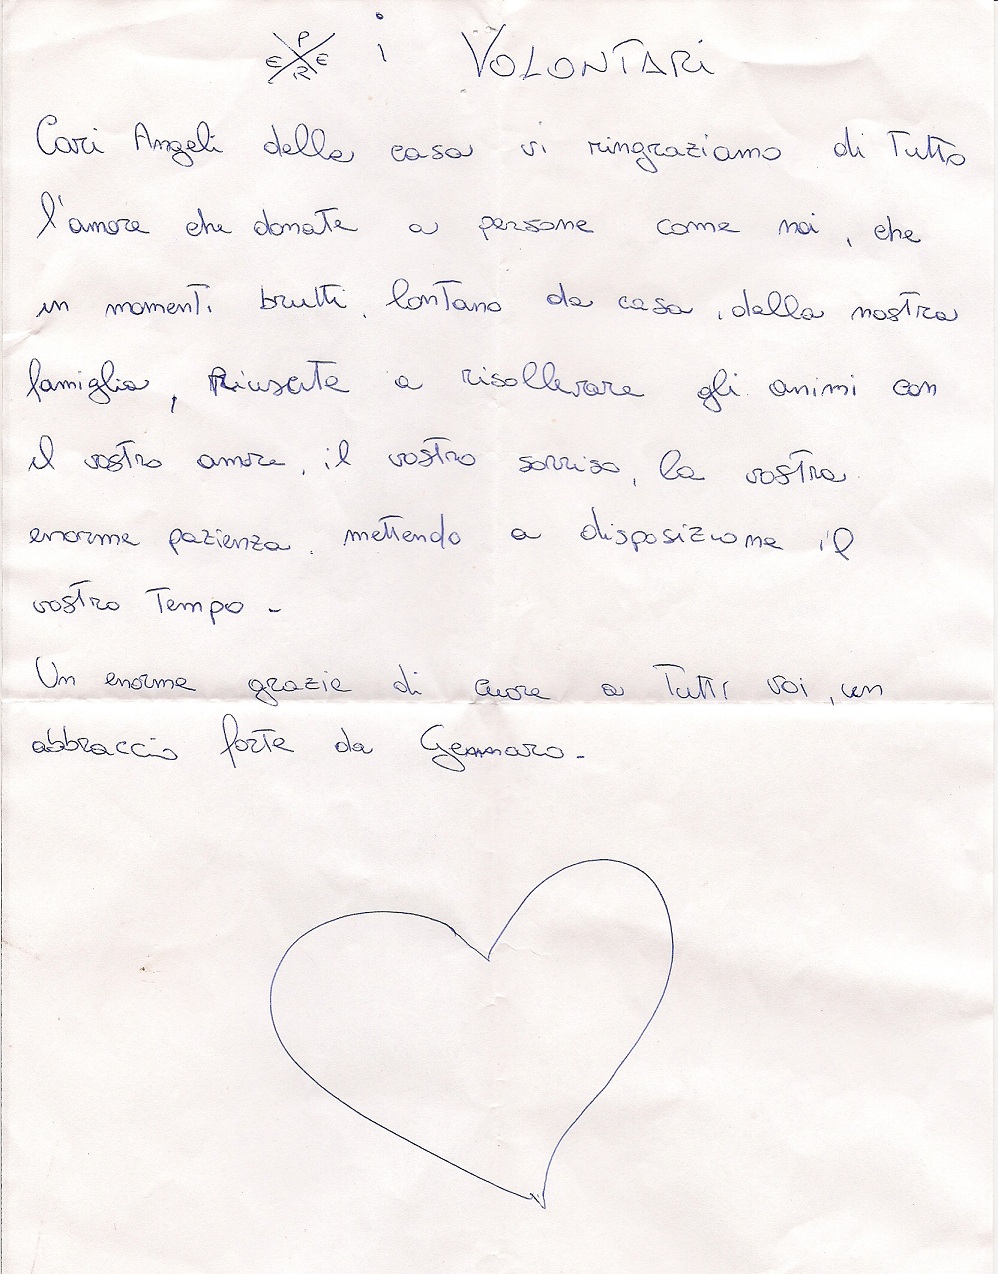 PER i VOLONTARI
Cari Angeli della casa vi ringraziamo di Tutto
l'amore che donate a persone come noi, che
in momenti brutti, lontano da casa, dalla nostra
famiglia, Riuscite a risollevare gli animi con
il vostro amore, il vostro sorriso, la vostra
enorme pazienza, mettendo a disposizione il
vostro Tempo -
Un enorme grazie di cuore a Tutti voi, un
abbraccio forte da Gennaro -